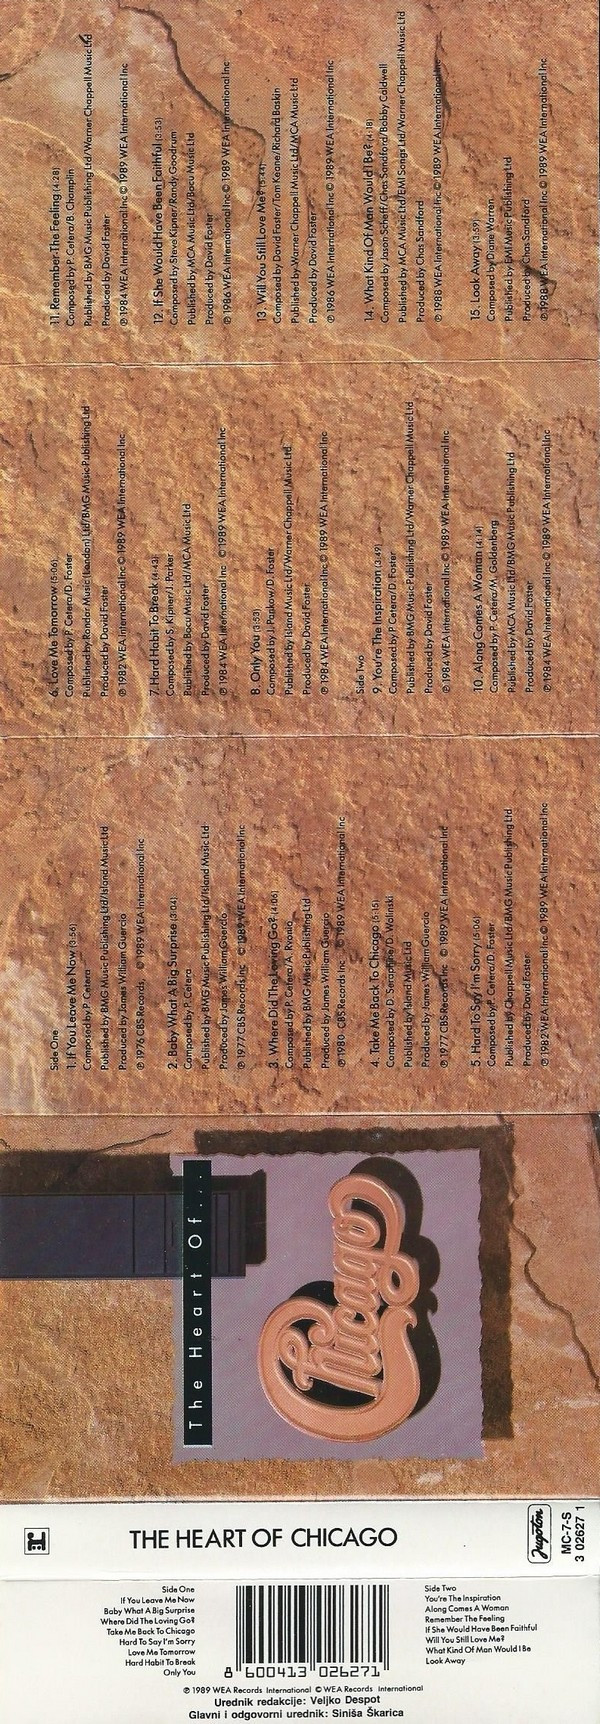 Side One
1. If You Leave Me Now (3:56)
Composed by P. Cetera
Published by BMG Music Publishing Ltd/Island Music Ltd
Produced by James William Guercio
℗ 1976 CBS Records © 1989 WEA International Inc
2. Baby What A Big Surprise (3:04)
Composed by P. Cetera
Published by BMG Music Publishing Ltd/Island Music Ltd
Produced by James William Guercio
℗ 1977 CBS Records Inc © 1989 WEA International Inc
3. Where Did The Loving Go? (4:06)
Composed by P. Cetera/A.
Published by BMG Music Publishing Ltd
Produced by James William Guercio
℗ 1980 CBS Records Inc © 1989 WEA International Inc
4. Take Me Back To Chicago (5:15)
Composed by D. Seraphine/D. Wolinski
Published by Island Music Ltd
Produced by James William Guercio
℗ 1977 CBS Records Inc © 1989 WEA International Inc
5. Hard To Say I'm Sorry (5:06)
Composed by P. Cetera/D. Foster
Published by Chappell Music Ltd/BMG Music Publishing Ltd
Produced by David Foster
℗ 1982 WEA International Inc © 1989 WEA International Inc
6. Love Me Tomorrow (5:06)
Composed by P. Cetera/D. Foster
Published by Rondor Music (London) Ltd/BMG Music Publishing Ltd
Produced by David Foster
℗ 1982 WEA International Inc © 1989 WEA International Inc
7. Hard Habit To Break (4:43)
Composed by S. Kipner/J. Parker
Published by Bocu Music Ltd/MCA Music Ltd
Produced by David Foster
℗ 1984 WEA International Inc © 1989 WEA International Inc
8. Only You (3:53)
Composed by J. Pankow/D. Foster
Published by Island Music Ltd/Warner Chappell Music Ltd
Produced by David Foster
℗ 1984 WEA International Inc © 1989 WEA International Inc
Side Two
9. You're The Inspiration (3:49)
Composed by P. Cetera/D. Foster
Published by BMG Music Publishing Ltd/Warner Chappell Music Ltd
Produced by David Foster
℗ 1984 WEA International Inc © 1989 WEA International Inc
10. Along Comes A Woman (4:14)
Composed by P. Cetera/M. Goldenberg
Published by MCA Music Ltd/BMG Music Publishing Ltd
Produced by David Foster
℗ 1984 WEA International Inc © 1989 WEA International Inc
11. Remember The Feeling (4:28)
Composed by P. Cetera/B. Champlin
Published by BMG Music Publishing Ltd/Warner Chappell Music Ltd
Produced by David Foster
℗ 1984 WEA International Inc © 1989 WEA International Inc
12. If She Would Have Been Faithful (3:53)
Composed by Steve Kipner/Randy Goodrum
Published by MCA Music Ltd/Bocu Music Ltd
Produced by David Foster
℗ 1986 WEA International Inc © 1989 WEA International Inc
13. Will You Still Love Me? (5:44)
Composed by David Foster/Tom Keane/Richard Baskin
Published by Warner Chappell Music Ltd/MCA Music Ltd
Produced by David Foster
℗ 1986 WEA International Inc © 1989 WEA International Inc
14. What Kind Of Man Would I Be? (4:18)
Composed by Jason Scheff/Chas Sandford/Bobby Caldwell
Published by MCA Music Ltd/EMI Songs Ltd/Warner Chappell Music Ltd
Produced by Chas Sandford
℗ 1988 WEA International Inc © 1989 WEA International Inc
15. Look Away (3:59)
Composed by Diane Warren
Published by EMI Music Publishing Ltd
Produced by Chas Sandford
℗ 1988 WEA International Inc © 1989 WEA International Inc
The Heart Of...
Chicago
THE HEART OF CHICAGO
Jugoton
MC-7-S
3 02627 1
Side One
If You Leave Me Now
Baby What A Big Surprise
Where Did The Loving Go?
Take Me Back To Chicago
Hard To Say I'm Sorry
Love Me Tomorrow
Hard Habit To Break
Only You
8 600413 026271
Side Two
You're The Inspiration
Along Comes A Woman
Remember The Feeling
If She Would Have Been Faithful
Will You Still Love Me?
What Kind Of Man Would I Be
Look Away
℗ 1989 WEA Records International © WEA Records International
Urednik redakcije: Veljko Despot
Glavni i odgovorni urednik: Siniša Škarica